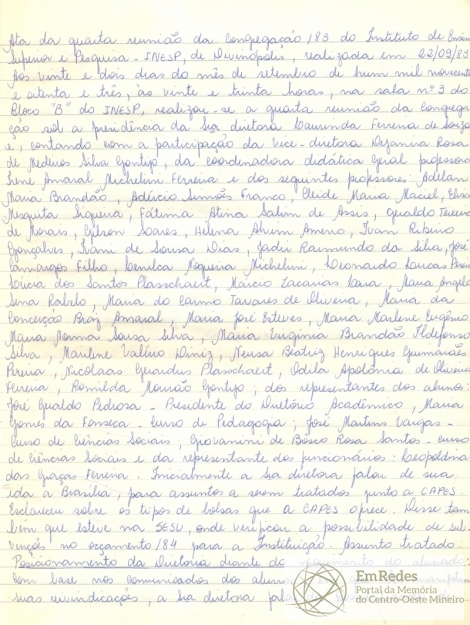 Ata da quarta reunião da Congregação/83 do Instituto de Ensino
Superior e Pesquisa - INESP, de Divinópolis, realizada em 22/09/83
Aos vinte e dois dias do mês de setembro de hum mil novecen
e oitenta e três, às vinte e trinta horas, na sala nº 3 do
Bloco "B" do INESP, realizou-se a quarta reunião da Congrega
ção sob a presidência da Sra diretora Ferreira de Souza
e, contando com a participação da Vice-diretora Dejanira Rosa
de Medeiros Silva Gontijo, da coordenadora didática Geral professora
Irene Amaral Michelini Ferreira e dos seguintes professores:
Maria Brandão, Simões Franco, Cleide Maria Maciel, Elisa
Mesquita Siqueira, Fátima Salim de Assis, Geraldo
de Morais, Gilson Soares, Helena Alvim Ameno, Ivan Ribeiro
Gonçalves, Ivani de Sousa Dias, Jadir Raimundo da Silva, José
Camargos Filho, Nogueira Michelini, Leonardo
dos Santos Plasschaert, Márcio Zacarias Lara, Maria Angela
Sena Rabelo, Maria do Carmo Tavares de Oliveira, Maria da
Conceição Amaral, Maria José Esteves, Maria Marlene Eugênio
Maria Norma Sousa Silva, Maria Virgínia Brandão Ildefonso
Silva, Marlene Valério Diniz, Neusa Beatriz Henriques Guimarães
Pereira, Nicolaas Gerardus Plasschaert, Odila Apolônia de Oliveira
Ferreira, Romilda Mourão Gontijo, dos representantes dos alunos:
José Geraldo Pedrosa - Presidente do Diretório Acadêmico, Maria
Gomes da Fonseca - Curso de Pedagogia; José Martins Vargas -
Curso de Ciências Sociais, Giovannini de Bósco Rosa Santos - Curso
de Ciências Sociais e da representante dos funcionários: Leopoldina
das Graças Ferreira. Inicialmente a Sra diretora falou de sua
ida a Brasília, para assuntos a serem tratados junto a CAPES.
Esclareceu sobre os tipos de bolsas que a CAPES oferece. Disse tam
bém que esteve na SESU, onde verificou a possibilidade de sub
venções no orçamento/84 para a Instituição. Assunto tratado
Posicionamento da Diretoria diante do movimento do alunado:
Com base nos comunicados dos alunos
suas reivindicações, a Sra diretora
EmRedes
Portal da Memória
do Centro-Oeste Mineiro